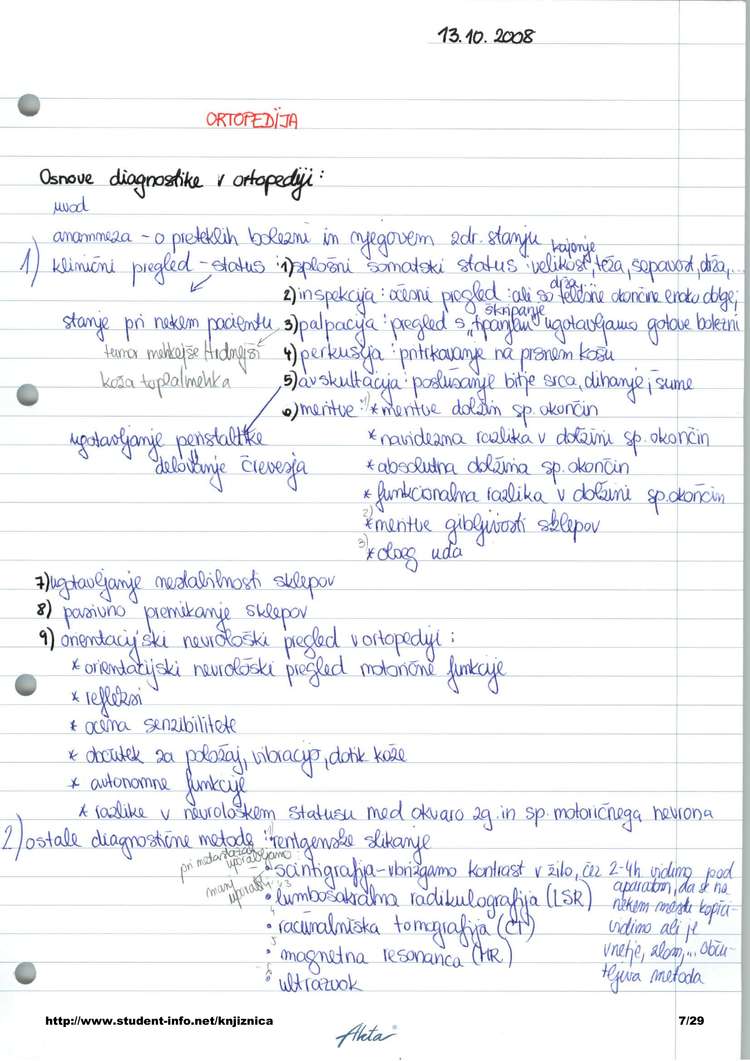 13.10.2008
ORTOPEDIJA
Osnove diagnostike v ortopediji:
uvod
anamneza - o preteklih bolezni in njegovem zdr. stanju
kajenje
1) klinični pregled - status: 1) splošni somatski status: velikost, teža, sopavost, drža,...
drža
2) inspekcija: očesni pregled: ali so telesne okončine enako dolge;
škripanje
stanje pri nekem pacientu 3) palpacija: pregled s "tipanjem" ugotavljamo gotove bolezni
tumor mehkejše trdnejši 4) perkusija: pritrkavanje na prsnem košu
koža topla/mehka 5) avskultacija: poslušanje bitje srca, dihanje, šume
6) meritve: 1) * meritve dolžin sp. okončin
ugotavljanje peristaltike * navidezna razlika v dolžini sp. okončin
delovanje črevesja * absolutna dolžina sp. okončin
* funkcionalna razlika v dolžini sp. okončin
2) * meritve gibljivosti sklepov
3) * obseg uda
7) ugotavljanje nestabilnosti sklepov
8) pasivno premikanje sklepov
9) orientacijski nevrološki pregled v ortopediji:
* orientacijski nevrološki pregled motorične funkcije
* refleksi
* ocena senzibilitete
* občutek za položaj, vibracijo, dotik kože
* avtonomne funkcije
* razlike v nevrološkem statusu med okvaro zg. in sp. motoričnega nevrona
2) ostale diagnostične metode: • rentgensko slikanje
pri metastazah uporabljamo
• scintigrafija - vbrizgamo kontrast v žilo, čez 2-4h vidimo pod
aparatom, da se na
manj uporab.
• lumbosakralna radikulografija (LSR) nekem mestu kopiči -
• računalniška tomografija (CT) vidimo ali je
• magnetna resonanca (MR) vnetje, zlom,... Obču-
• ultrazvok tljiva metoda
http://www.student-info.net/knjiznica
7/29
Aleta